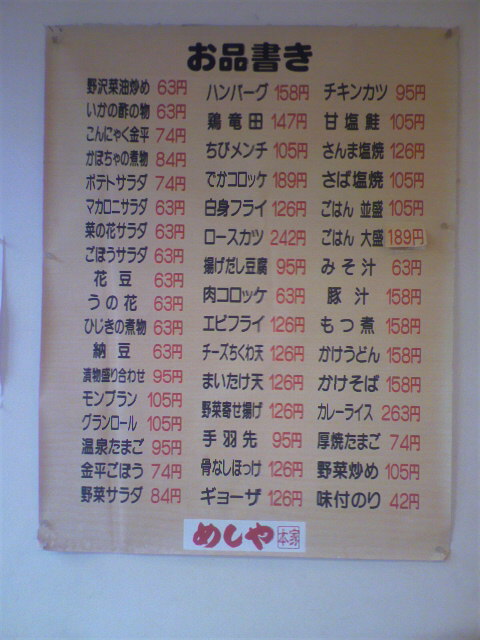 お品書き
野沢菜油炒め 63円
いかの酢の物 63円
こんにゃく金平 74円
かぼちゃの煮物 84円
ポテトサラダ 74円
マカロニサラダ 63円
菜の花サラダ 63円
ごぼうサラダ 63円
花豆 63円
うの花 63円
ひじきの煮物 63円
納豆 63円
漬物盛り合わせ 95円
モンブラン 105円
グランロール 105円
温泉たまご 95円
金平ごぼう 74円
野菜サラダ 84円
ハンバーグ 158円
鶏竜田 147円
ちびメンチ 105円
でかコロッケ 189円
白身フライ 126円
ロースカツ 242円
揚げだし豆腐 95円
肉コロッケ 63円
エビフライ 126円
チーズちくわ天 126円
まいたけ天 126円
野菜寄せ揚げ 126円
手羽先 95円
骨なしほっけ 126円
ギョーザ 126円
チキンカツ 95円
甘塩鮭 105円
さんま塩焼 126円
さば塩焼 105円
ごはん 並盛 105円
ごはん 大盛 189円
みそ汁 63円
豚汁 158円
もつ煮 158円
かけうどん 158円
かけそば 158円
カレーライス 263円
厚焼たまご 74円
野菜炒め 105円
味付のり 42円
めしや 本家